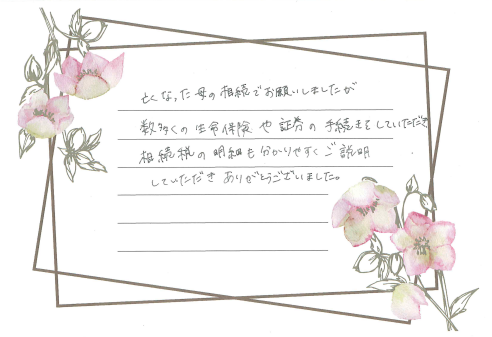 亡くなった母の相続でお願いしましたが
数多くの生命保険や証券の手続きをしていただき
相続税の明細も分かりやすくご説明
していただきありがとうございました。